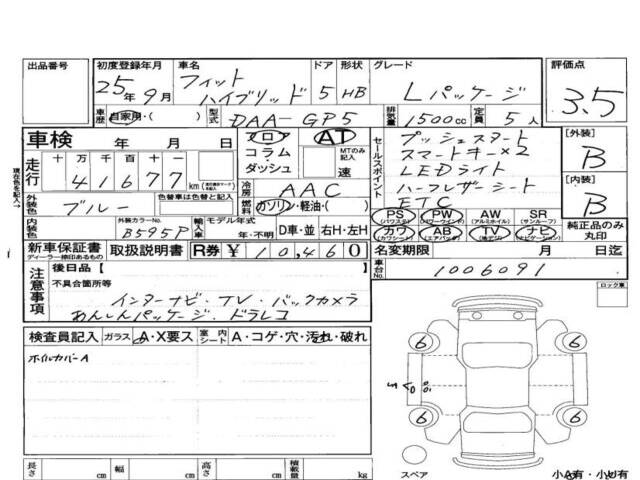 出品番号 初度登録年月 車名 ドア 形状 グレード 評価点
25年9月 フィット ハイブリッド 5 HB Lパッケージ 3.5
車歴 自家用・( ) 型式 DAA-GP5 排気量 1500cc 定員 5人
車検 年 月 日 フロア AT
コラム MTのみ記入
ダッシュ 速
セールスポイント
プッシュスタート
スマートキー×2
LEDライト
ハーフレザーシート
ETC
[外装] B
[内装] B
現在色を記入→
走行 十万千百十一
41677 km
冷房 AAC
外装色 ブルー 色替車は色替と記入 燃料 ガソリン・軽油・( )
内装色 外装カラーNo. B595P 輸入車 モデル年式 年・不明 D車・並 右H・左H
PS (パワステ) PW (パワーウィンド) AW (アルミホイル) SR (サンルーフ)
カワ (カワシート) AB (エアバック) TV (地デジ) ナビ (ナビゲーション)
純正品のみ丸印
新車保証書 ディーラー捺印あるもの 取扱説明書 R券 ¥10,460
名変期限 月 日迄
車台No. 1006091
注意事項 後日品[ ]
不具合箇所等
インターナビ・TV・バックカメラ
あんしんパッケージ・ドラレコ
ロック車
検査員記入 ガラス A・X要ス 室内シート A・コゲ・穴・汚れ・破れ
ホイルカバーA
6 6
6 6
スペア 小A有・小U有
長さ cm 幅 cm 高さ cm 積載量 kg